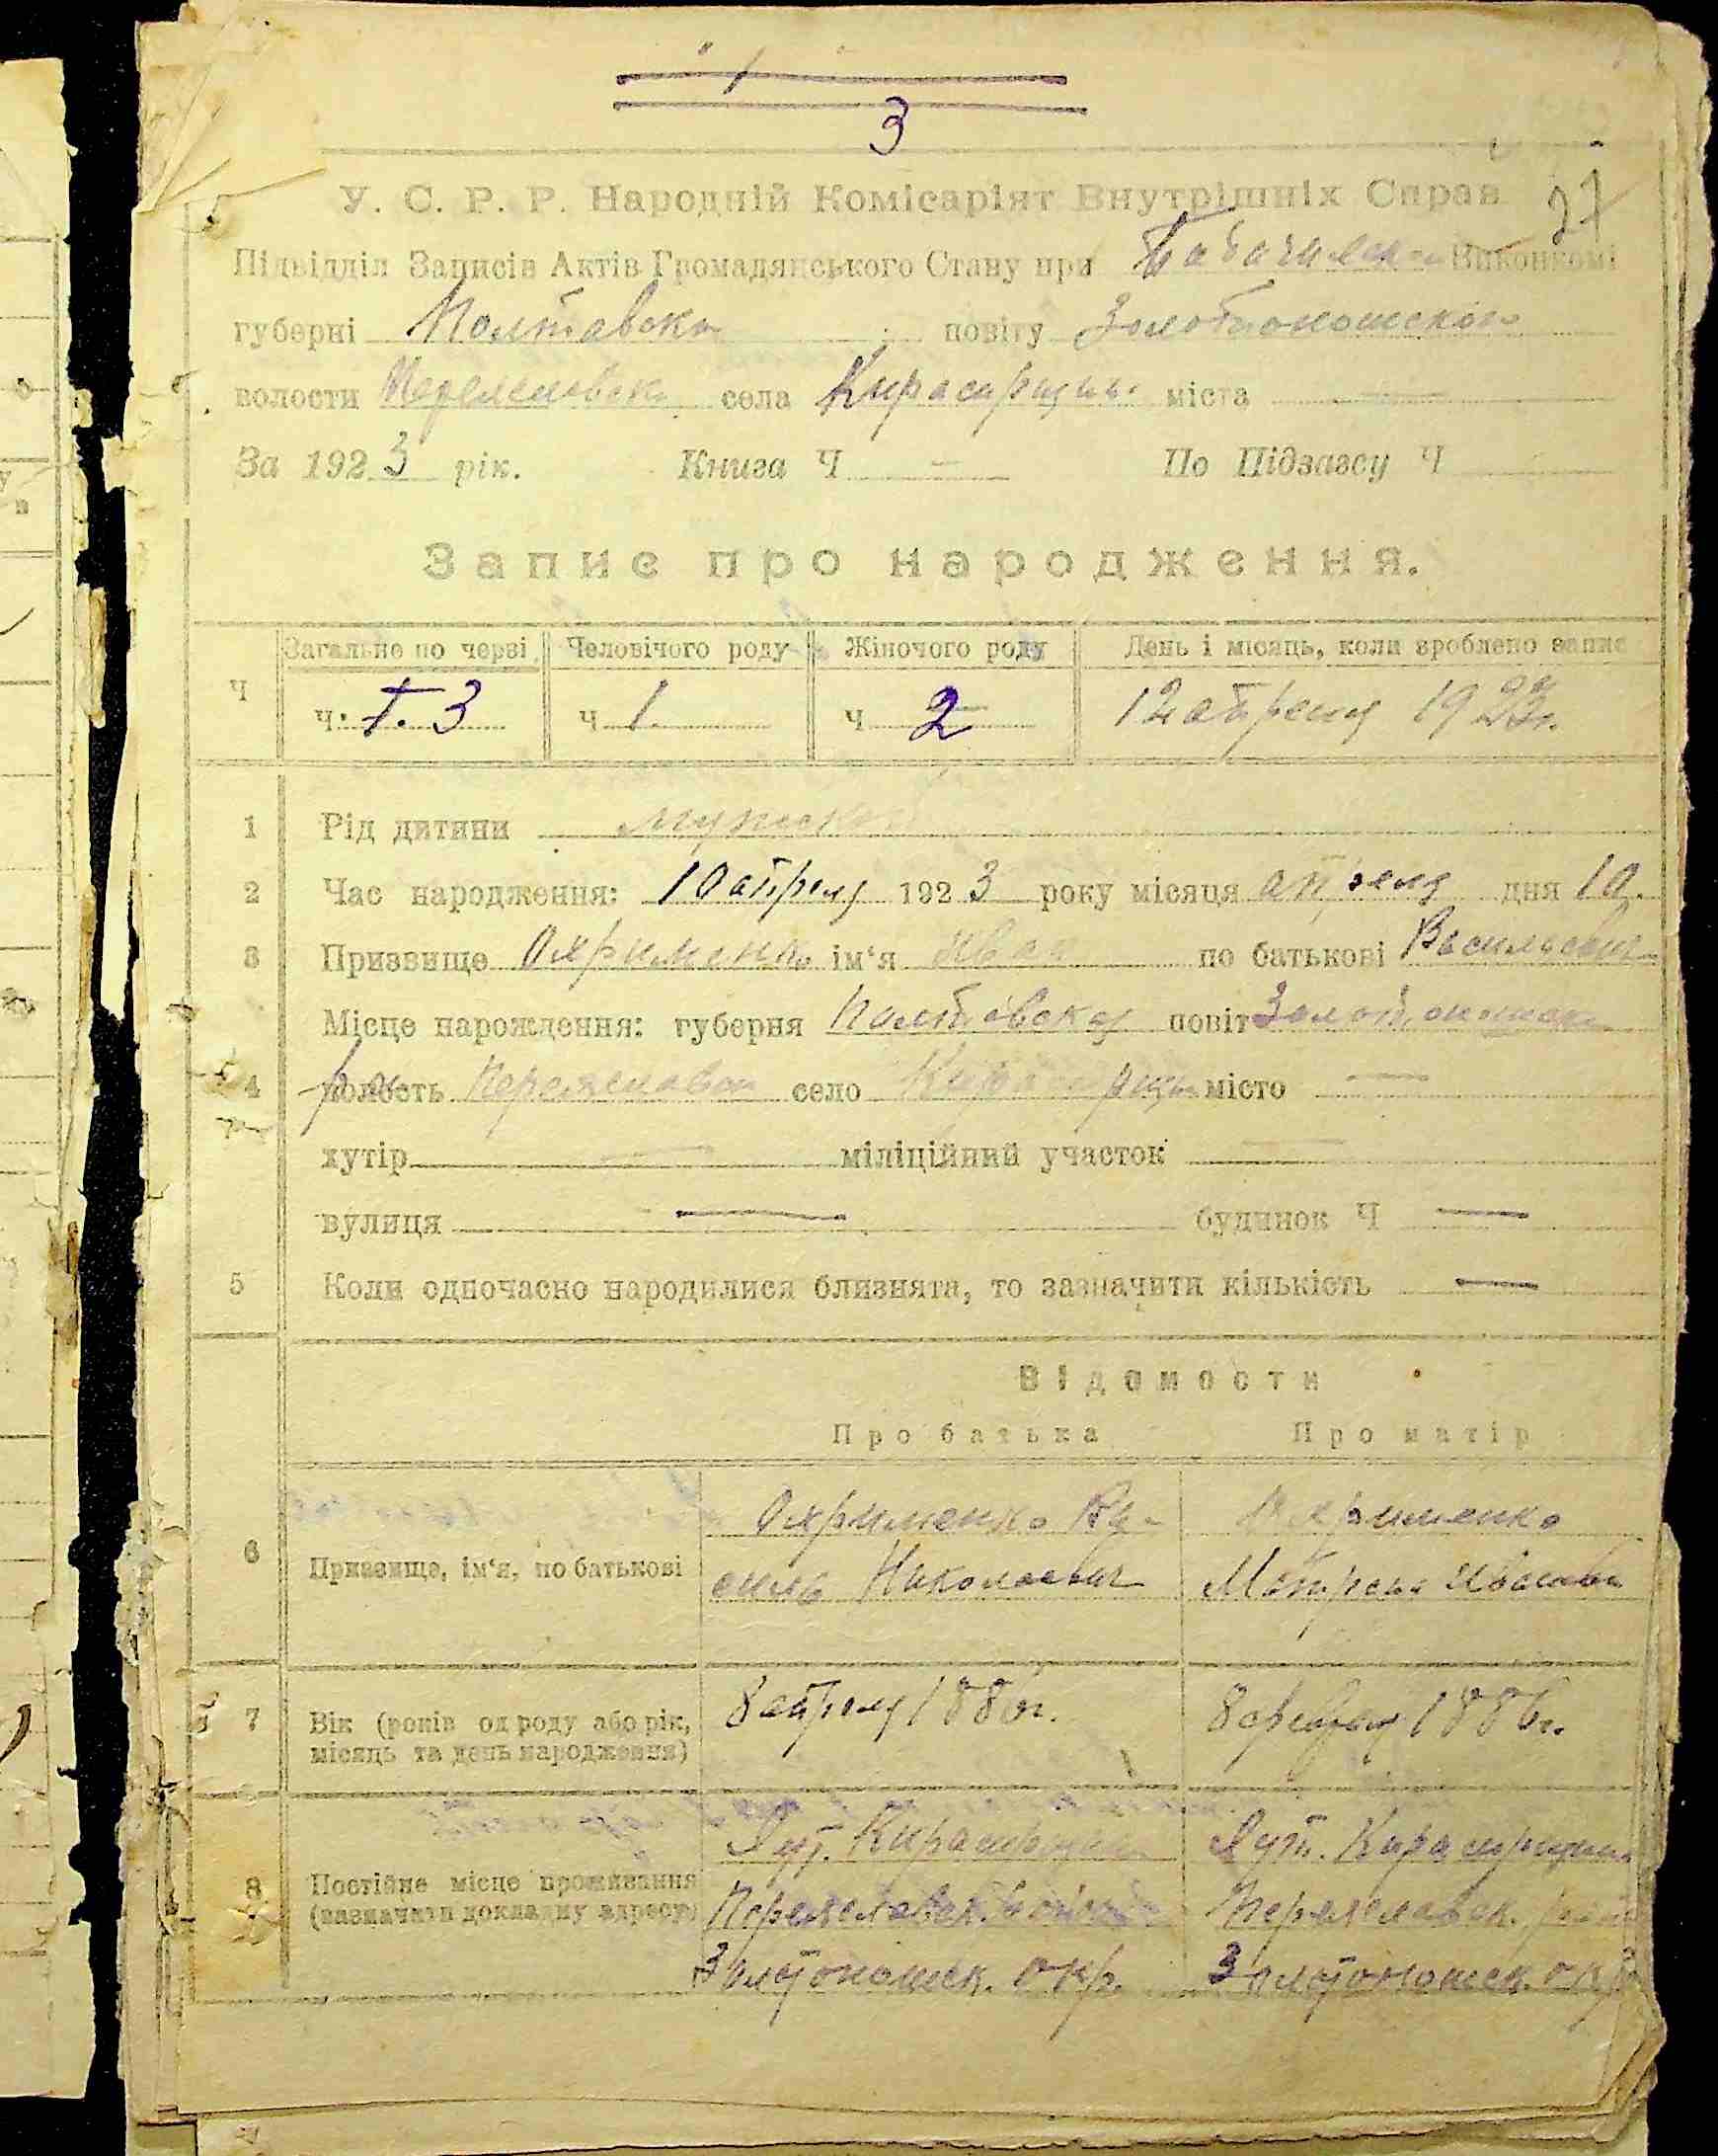 1
3
27
У. С. Р. Р. Народній Комісаріят Внутрішніх Справ
Підвідділ Записів Актів Громадянського Стану при Виконкомі
губерні Полтавска повіту Золотоношского
волости села міста —
За 1923 рік. Книга Ч — По Підзагсу Ч
Запис про народження.
Загальне по черзі Человічого роду Жіночого роду День і місяць, коли зроблено запис
Ч ч. 3 ч 1. ч 2 12 апреля 1923 г.
1 Рід дитини мужской
2 Час народження: 10 апреля 1923 року місяця апреля дня 10.
3 Призвище Охрименко ім‘я Иван по батькові Васильевич
Місце нарождення: губерня Полтавская повіт Золотоношск
4 волость Переяславск село місто —
хутір — міліційний участок —
вулиця — будинок Ч —
5 Коли одночасно народилися близнята, то зазначити кількість —
Відомости
Про батька Про матір
6 Призвище, ім‘я, по батькові
Охрименко Ва- Охрименко
силь Николаевич
7 Вік (років од роду або рік, місяць та день народження)
8 апреля 1886 г. 8 февраля 1886 г.
8 Постійне місце проживання (зазначати докладну адресу)
Хут. Хут.
Переяславск. Переяславск.
Золотоношск. окр. Золотоношск. окр